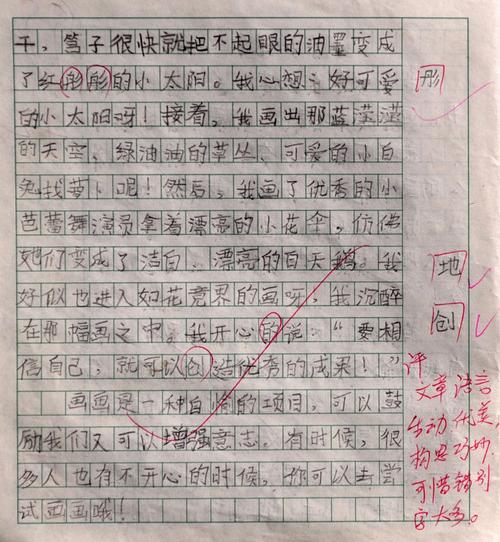 干，笔子很快就把不起眼的油墨变成
了红彤彤的小太阳。我心想：好可爱
的小太阳呀！接着，我画出那蓝滢滢
的天空、绿油油的草丛、可爱的小白
兔找萝卜呢！然后，我画了优秀的小
芭蕾舞演员拿着漂亮的小花伞，仿佛
她们变成了洁白、漂亮的白天鹅。我
好似也进入如花竟界的画呀，我沉醉
在那幅画之中。我开心的说：“要相
信自己，就可以创造优秀的成果！”
画画是一种自愉的项目，可以鼓
励我们又可以增强意志。有时候，很
多人也有不开心的时候，你可以去尝
试画画哦！
彤
地
创
评
文章语言
生动优美，
构思巧妙，
可惜错别
字太多。